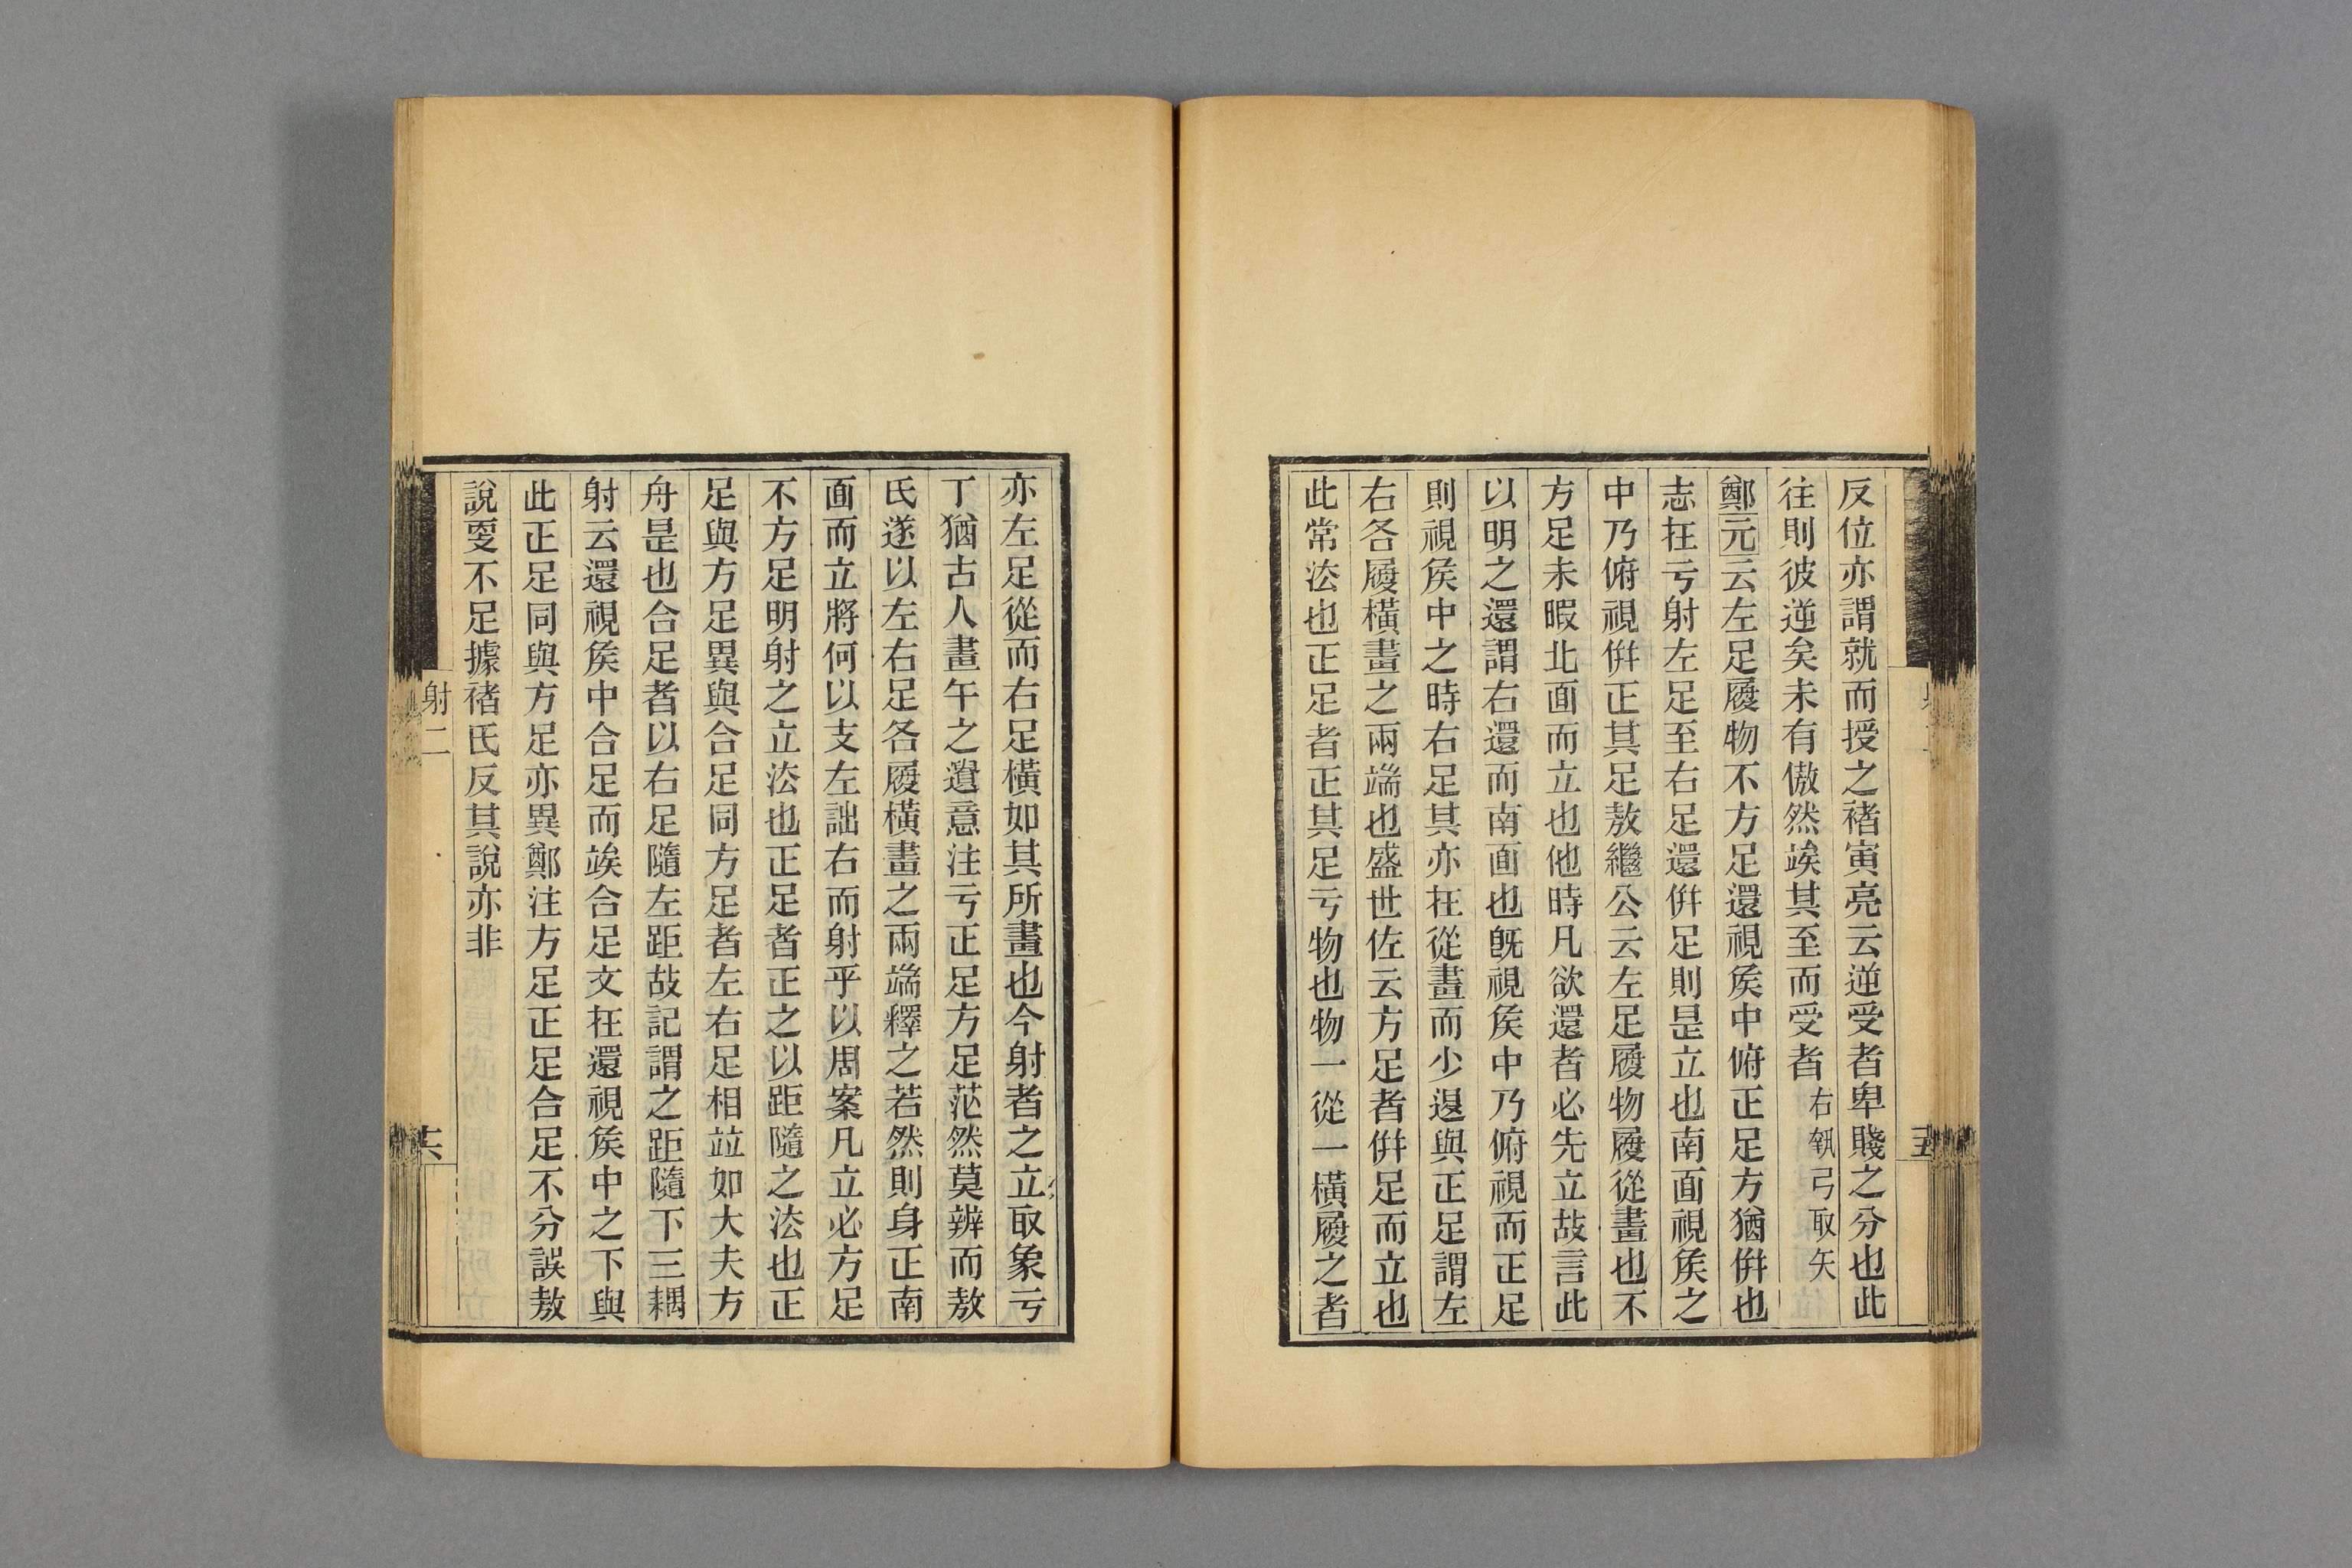 反位亦謂就而授之褚寅亮云逆受者卑賤之分也此
往則彼逆矣未有傲然竢其至而受者右執弓取矢
鄭元云左足履物不方足還視矦中俯正足方猶併也
志在亏射左足至右足還併足則昰立也南面視矦之
中乃俯視併正其足敖繼公云左足履物履從畫也不
方足未暇北面而立也他時凡欲還者必先立故言此
以明之還謂右還而南面也旣視矦中乃俯視而正足
則視矦中之時右足其亦在從畫而少退與正足謂左
右各履橫畫之兩端也盛世佐云方足者併足而立也
此常法也正足者正其足亏物也物一從一橫履之者
亦左足從而右足橫如其所畫也今射者之立取象亏
丁猶古人畫午之遺意注亏正足方足茫然莫辨而敖
氏遂以左右足各履橫畫之兩端釋之若然則身正南
面而立將何以支左詘右而射乎以周案凡立必方足
不方足明射之立法也正足者正之以距隨之法也正
足與方足異與合足同方足者左右足相竝如大夫方
舟昰也合足者以右足隨左距故記謂之距隨下三耦
射云還視矦中合足而竢合足文在還視矦中之下與
此正足同與方足亦異鄭注方足正足合足不分誤敖
說耎不足據褚氏反其說亦非
射二